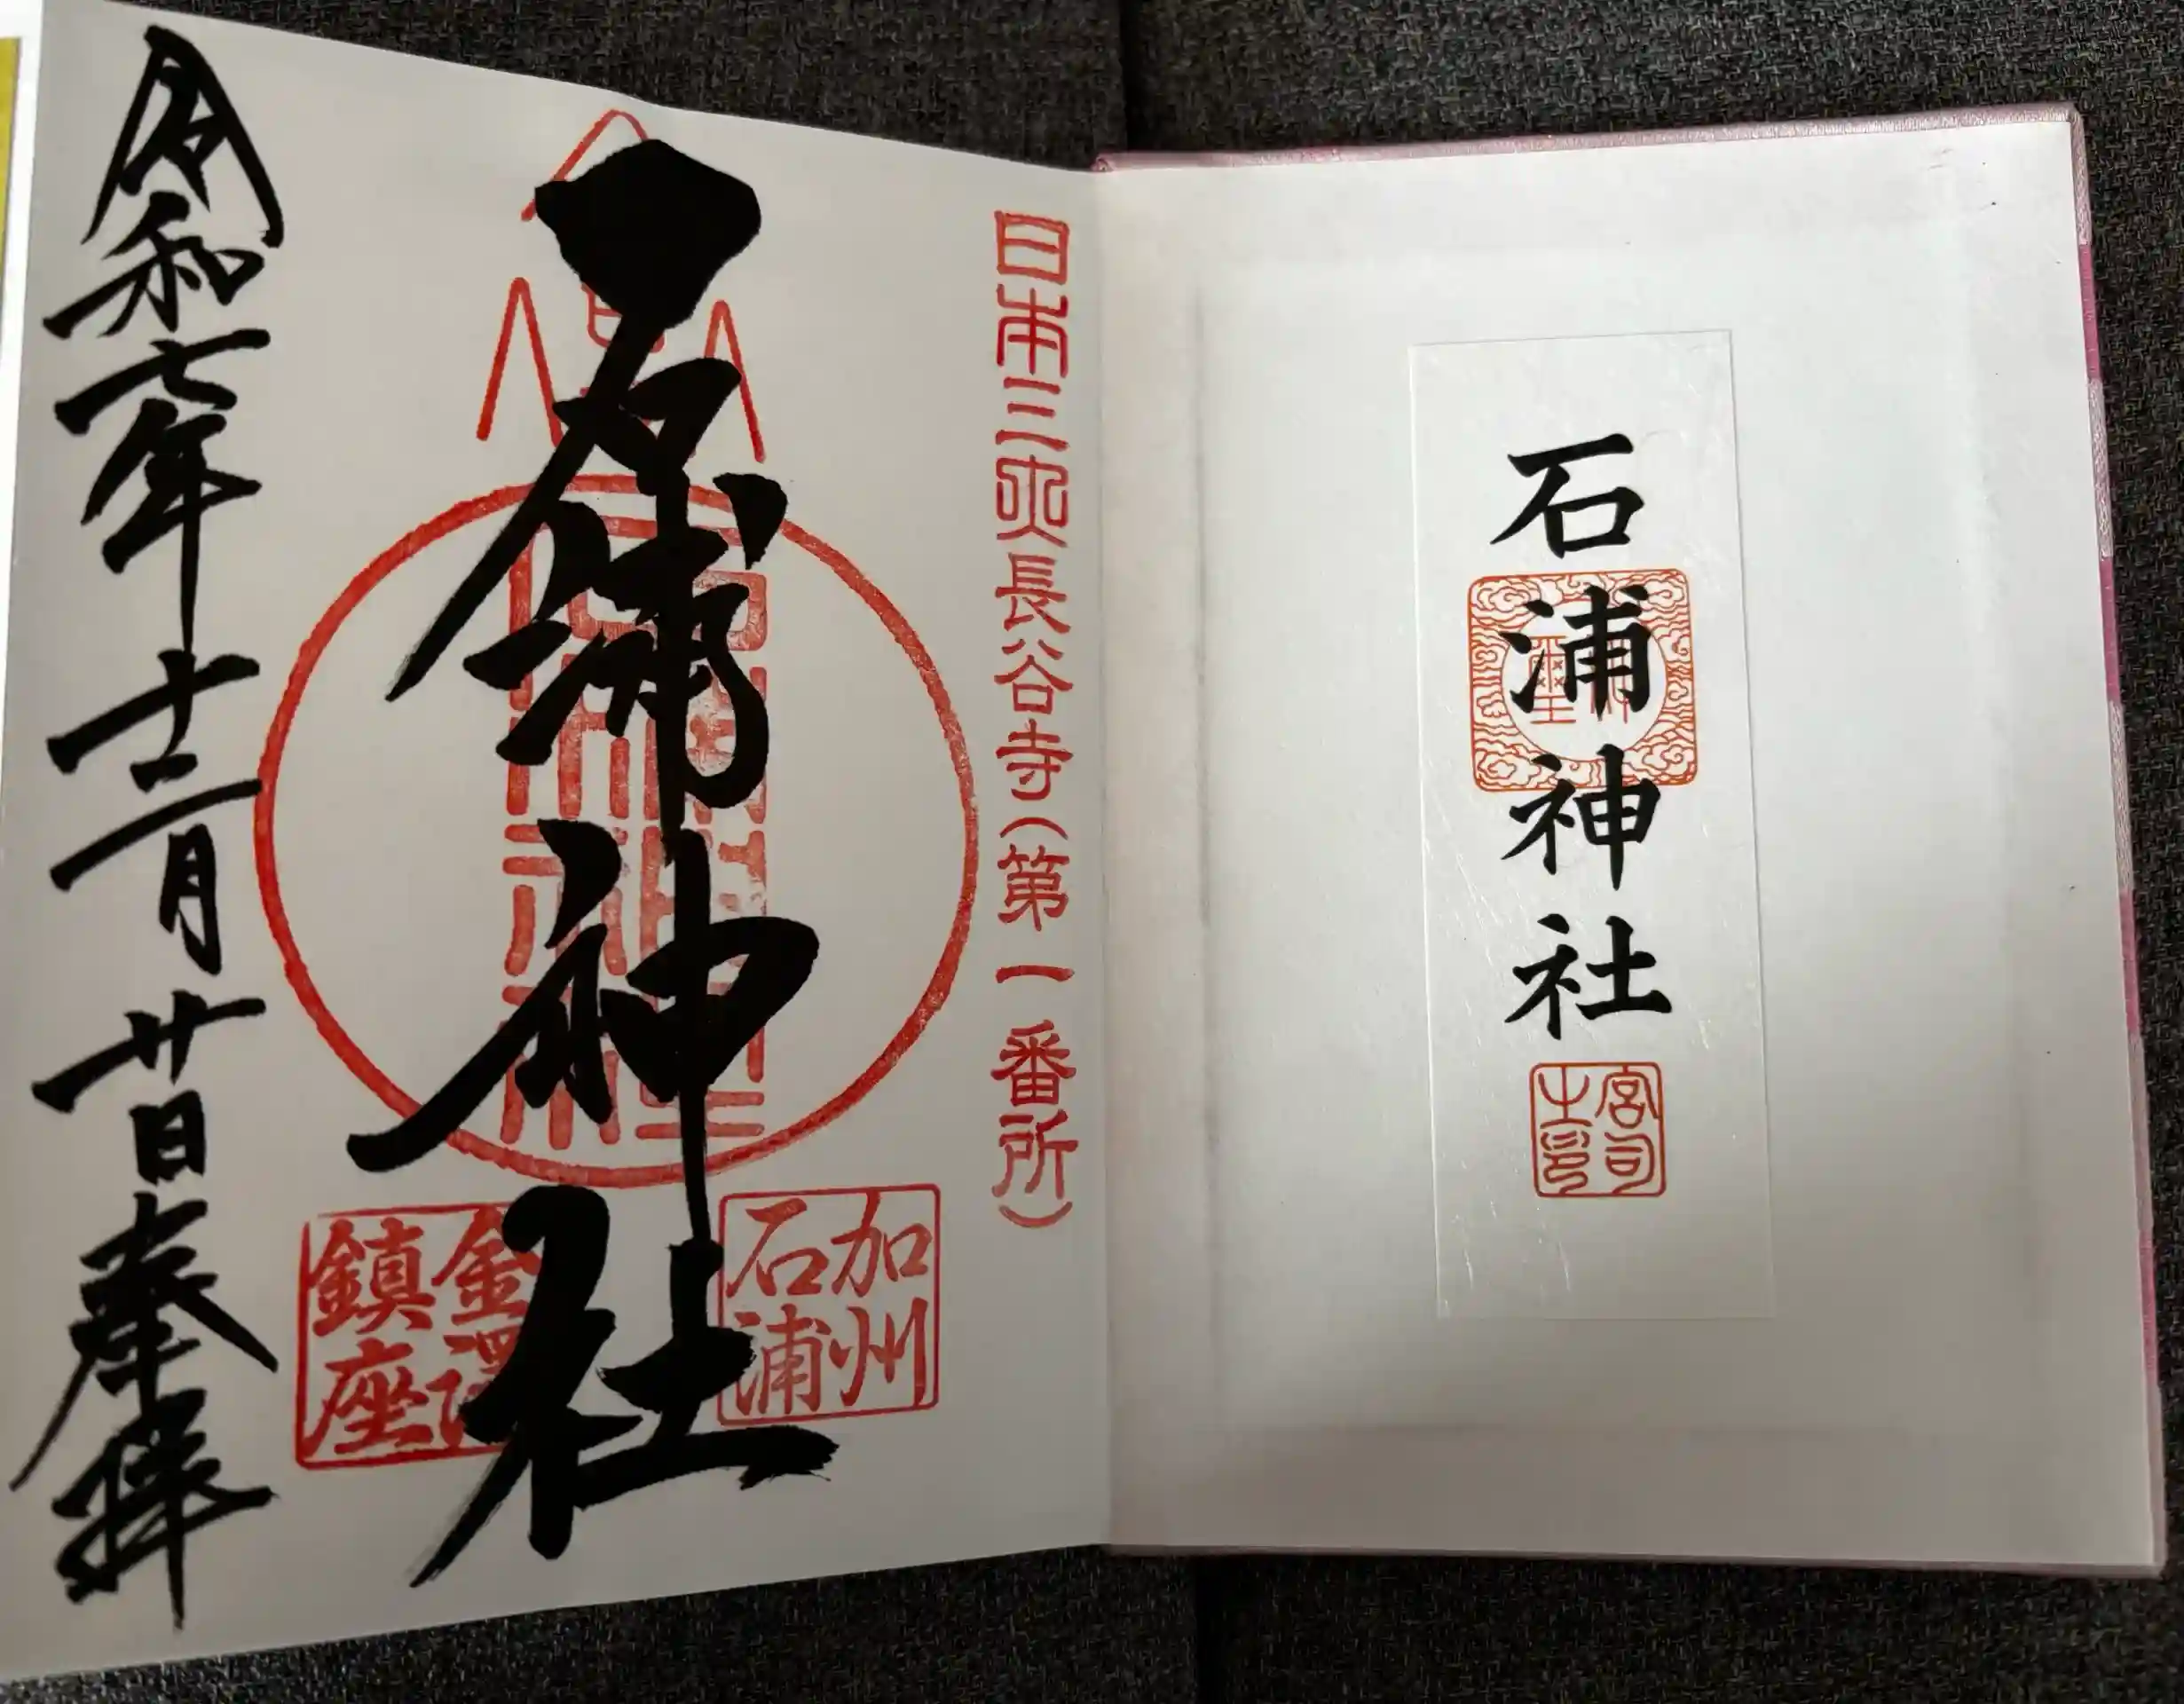 石浦神社
宮司之印
日本三大長谷寺(第一番所)
石浦神社
加州
石浦
金澤
鎮座
令和七年十二月廿日奉拝